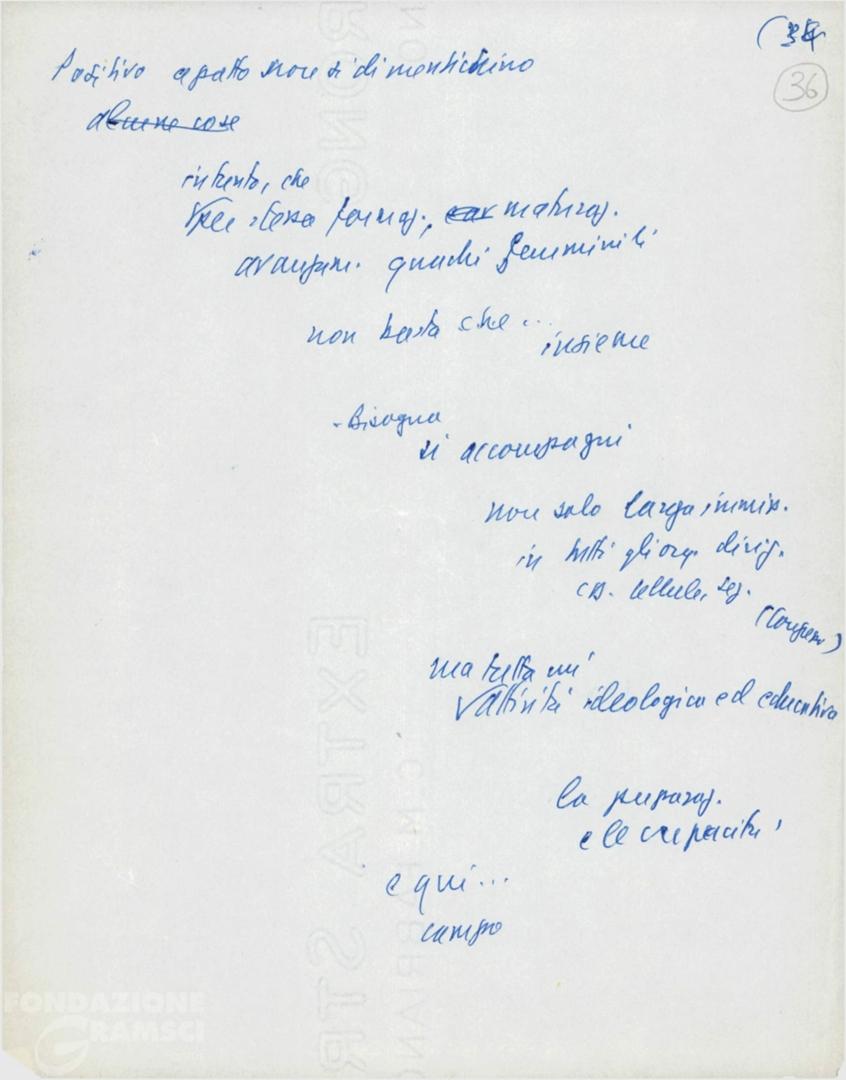 (34
36
Positivo a patto non si dimentichino
alcune cose
intento, che
per stessa formaz., maturaz.
avanzam. quadri femminili
non basta che...
insieme
- Bisogna
si accompagni
non solo larga immis.
in tutti gli org. dirig.
cellule, sez.
(Congressi)
ma tutta un'
attività ideologica ed educativa
la preparaz.
e le capacità
e qui...
campo
FONDAZIONE
GRAMSCI
EXTRA STR